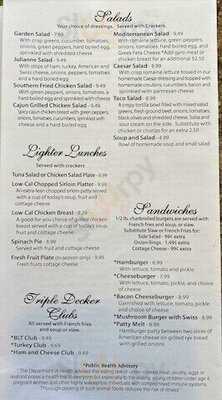 Salads
Your choice of dressings. Served with Crackers.
Garden Salad - 7.99
With crisp greens, cucumber, tomatoes,
onions, green peppers, hard boiled egg,
sprinkled with shredded cheese
Julianne Salad - 9.49
With strips of ham, turkey, American and
Swiss cheese, onions, peppers, tomatoes
and a hard boiled egg
Southern Fried Chicken Salad - 9.49
With green peppers, onions, tomatoes, a
hard boiled egg and sprinkled with cheese
Cajun Grilled Chicken Salad - 9.49
With crisp greens, tomatoes, onions,
peppers, cucumbers, sprinkled with
cheese and a hard boiled egg
Mediterranean Salad - 9.49
With romaine lettuce, green peppers,
onions, tomatoes, hard boiled egg, and
Greek Feta Cheese *Add gyro meat or
chicken breast for an additional $2.50
Caesar Salad - 8.99
With crisp romaine lettuce tossed in our
homemade Caesar dressing and topped with
homemade croutons, cucumbers, bacon
sprinkled with parmesan cheese
Taco Salad - 8.99
A crisp tortilla bowl filled with mixed salad
greens, fresh ground beef, onions, tomatoes,
shredded cheese, served with sour cream
and salsa on the side. Substitute with
chicken or shrimp for an extra 2.50
Soup and Salad - 8.49
Bowl of Soup and a small salad
Lighter Lunches
Served with crackers
Tuna Salad or Chicken Salad Plate - 8.99
Low Cal Chopped Sirloin Platter - 9.99
An extra lean chopped sirloin patty served
with a cup of today's soup, fruit and
cottage cheese
Low Cal Chicken Breast - 8.99
A good for you choice of grilled chicken
breast served with a cup of today's soup,
fruit and cottage cheese
Spinach Pie - 8.99
Served with fruit and cottage cheese
Fresh Fruit Plate
Fresh fruits cottage cheese
Sandwiches
1/2 lb. charbroiled burgers are served with
French fries and soup, or slaw.
Substitute Slaw or French fries for:
Side Salad - 99¢ extra
Onion Rings - 1.49¢ extra
Cottage Cheese - 99¢ extra
*Hamburger - 8.49
With lettuce, tomato and pickle
*Cheeseburger - 8.99
With lettuce, tomato, pickle, and choice
of cheese
*Bacon Cheeseburger - 9.99
Garnished with lettuce, tomato, pickle
and choice of cheese
*Mushroom Burger with Swiss - 8.99
*Patty Melt - 8.99
Hamburger patty between two slices of
American cheese on grilled rye bread
with grilled onions
Triple Decker
Clubs
All served with French fries
and soup or slaw.
*BLT Club - 9.49
*Turkey Club - 9.49
*Ham and Cheese Club - 9.49
*Public Health Advisory